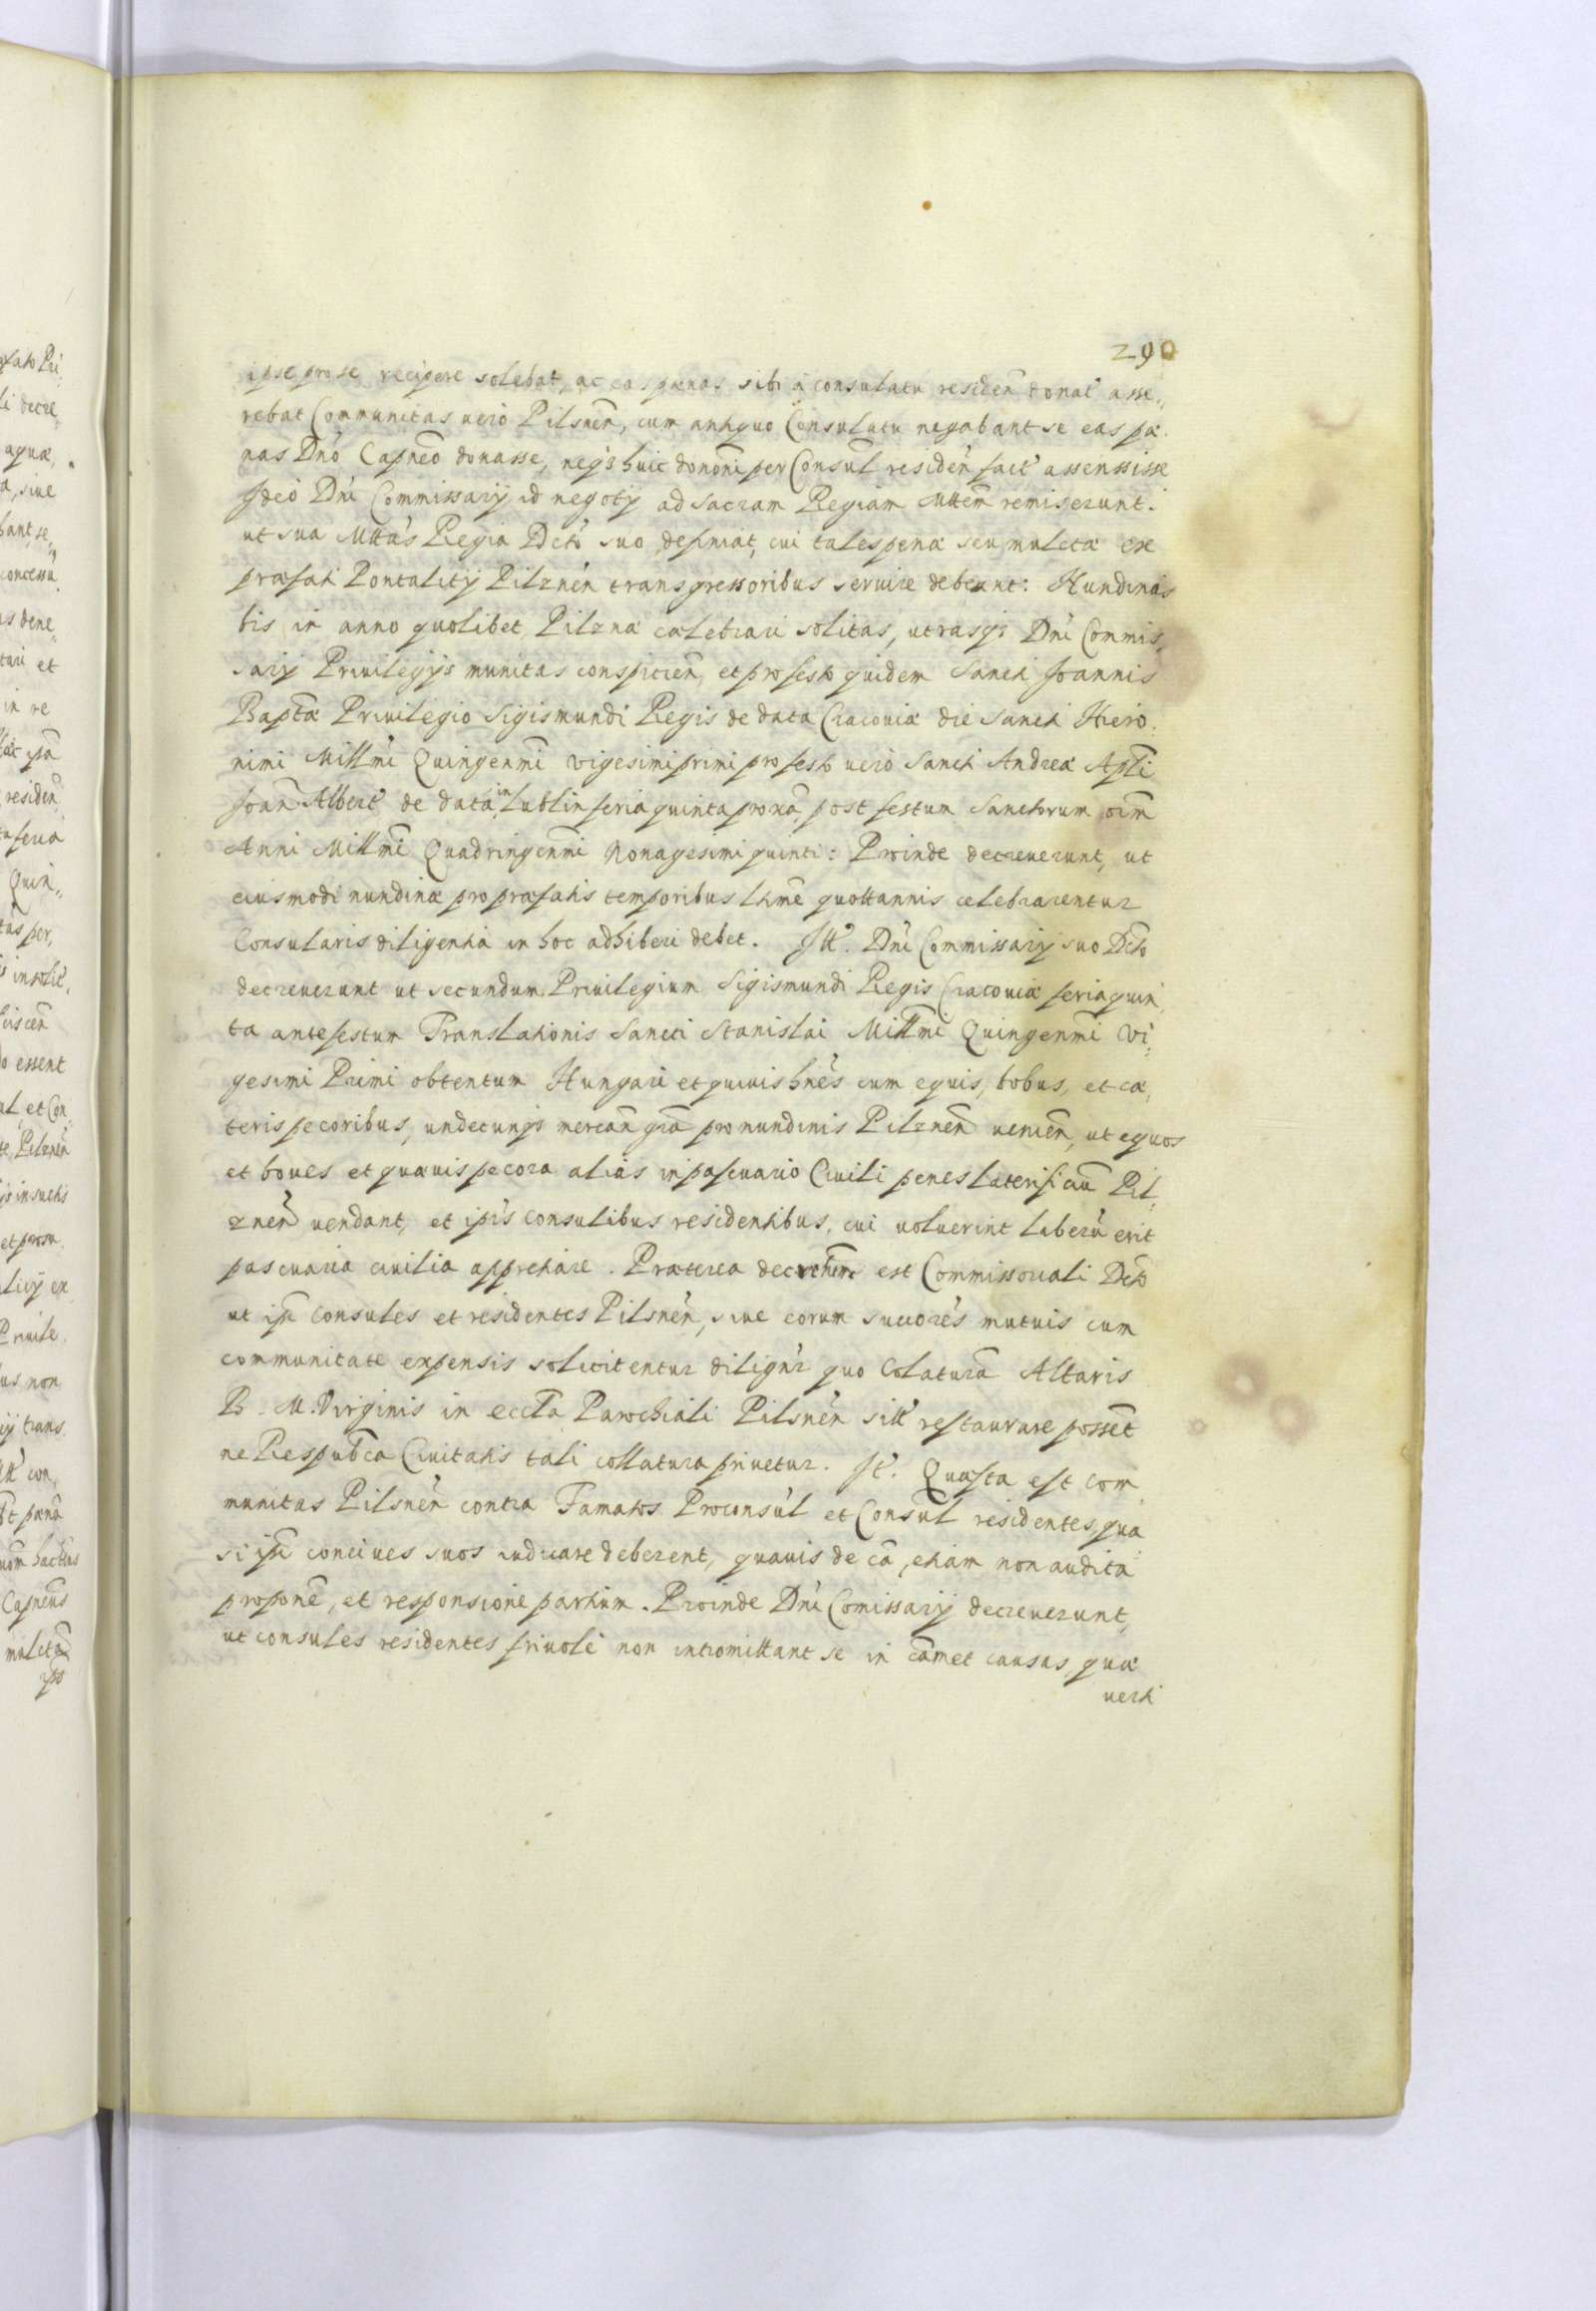 290
ipse pro se recipere solebat, ac eas pænas sibi à consulatu residen̄ donat̓ asse„
rebat Communitas uerò Pilsnen̄, cum antiquo Consulatu negabant se eas pæ„
nas Dn̄o Capn̄eo donasse, neqȝ huic donōni per Consul̄ residen̄ fact̓ assenssisse
Ideò Dn̄i Commissarij id negotij ad Sacram Regiam Mttem̄ remiserunt.
ut sua Mttas̓ Regia Dcto̓ suo definiat, cui tales pena seu mulcta ex
præfati Pontalitij Pilznen̄ transgressoribus seruire debeant: Nundinas
bis in anno quolibet Pilznæ cælebrari solitas, utrasqȝ Dn̄i Commis„
sarij Priuilegijs munitas conspicien̄, et pro festo quidem Sancti Joannis
Bapt̄æ Priuilegio Sigismundi Regis de data Cracouiæ die Sancti Hiero„
nimi Millm̄i Quingenm̄i vigesimi primi pro festo uerò Sancti Andreæ Apl̄i
Joan̄ Albert̓ de data in Lublin feria quinta proxā post festum Sanctorum oīm
Anni Millm̄i Quadringenm̄i Nonagesimi quinti: Proinde decreuerunt, ut
eiusmodi nundinæ pro præfatis temporibus lt̄me quottannis celebrarentur
Consularis diligentia in hoc adhiberi debet. Itt̓. Dn̄i Commissarij suo Dcto̓
decreuerunt ut secundum Priuilegium Sigismundi Regis Cracouiæ feria quin„
ta ante festum Translationis Sancti Stanislai Millm̄i Quingenm̄i Vi„
gesimi Primi obtentum Hungari et quiuis hn̄es cum equis, bobus, et cæ„
teris pecoribus, undecunqȝ mercan̄ grā pro nundinis Pilznen̄ uenien̄, ut equos
et boues et quæuis pecora aliàs in pascuario Ciuili penes laterificiū Pil„
znen̄ uendant, et ipis̄ consulibus residentibus, cui uoluerint liberū erit
pascuaria ciuilia appretiare. Præterea decretum est Commissoriali Dcto̓
ut ipī consules et residentes Pilsnen̄, siue eorum succores̓ mutuis cum
communitate expensis solicitentur dilign̓r quo Colaturā Altaris
B. M. Virginis in eccla̓ Parochiali Pilsnen̄ sitt̓ restaurare posset
ne Respub̄ca Ciuitatis tali collatura priuetur. It̓. Quæsta est com„
munitas Pilsnen̄ contra Famatos Proconsul̄ et Consul̄ residentes, qua
si ipī conciues suos iudicare deberent, quauis de cā, etiam non audita
propone̓, et responsione partium. Proinde Dn̄i Comissarij decreuerunt,
ut consules residentes friuolè non intromittant se in eāmet causas, quæ
uerti